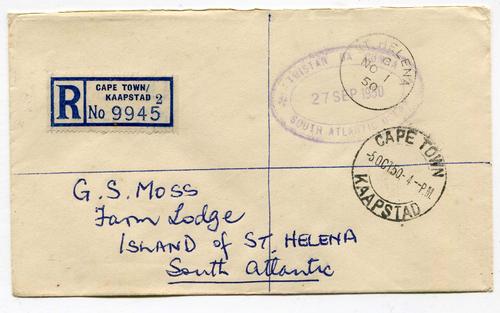 R
CAPE TOWN/
KAAPSTAD 2
No 9945
TRISTAN DA CUNHA
27 SEP 1950
SOUTH ATLANTIC
HELENA
NO 1
50
CAPE TOWN
-5 OCT 50-4-PM.
KAAPSTAD
G. S. Moss
Farm Lodge
ISLAND of ST. HELENA
South Atlantic